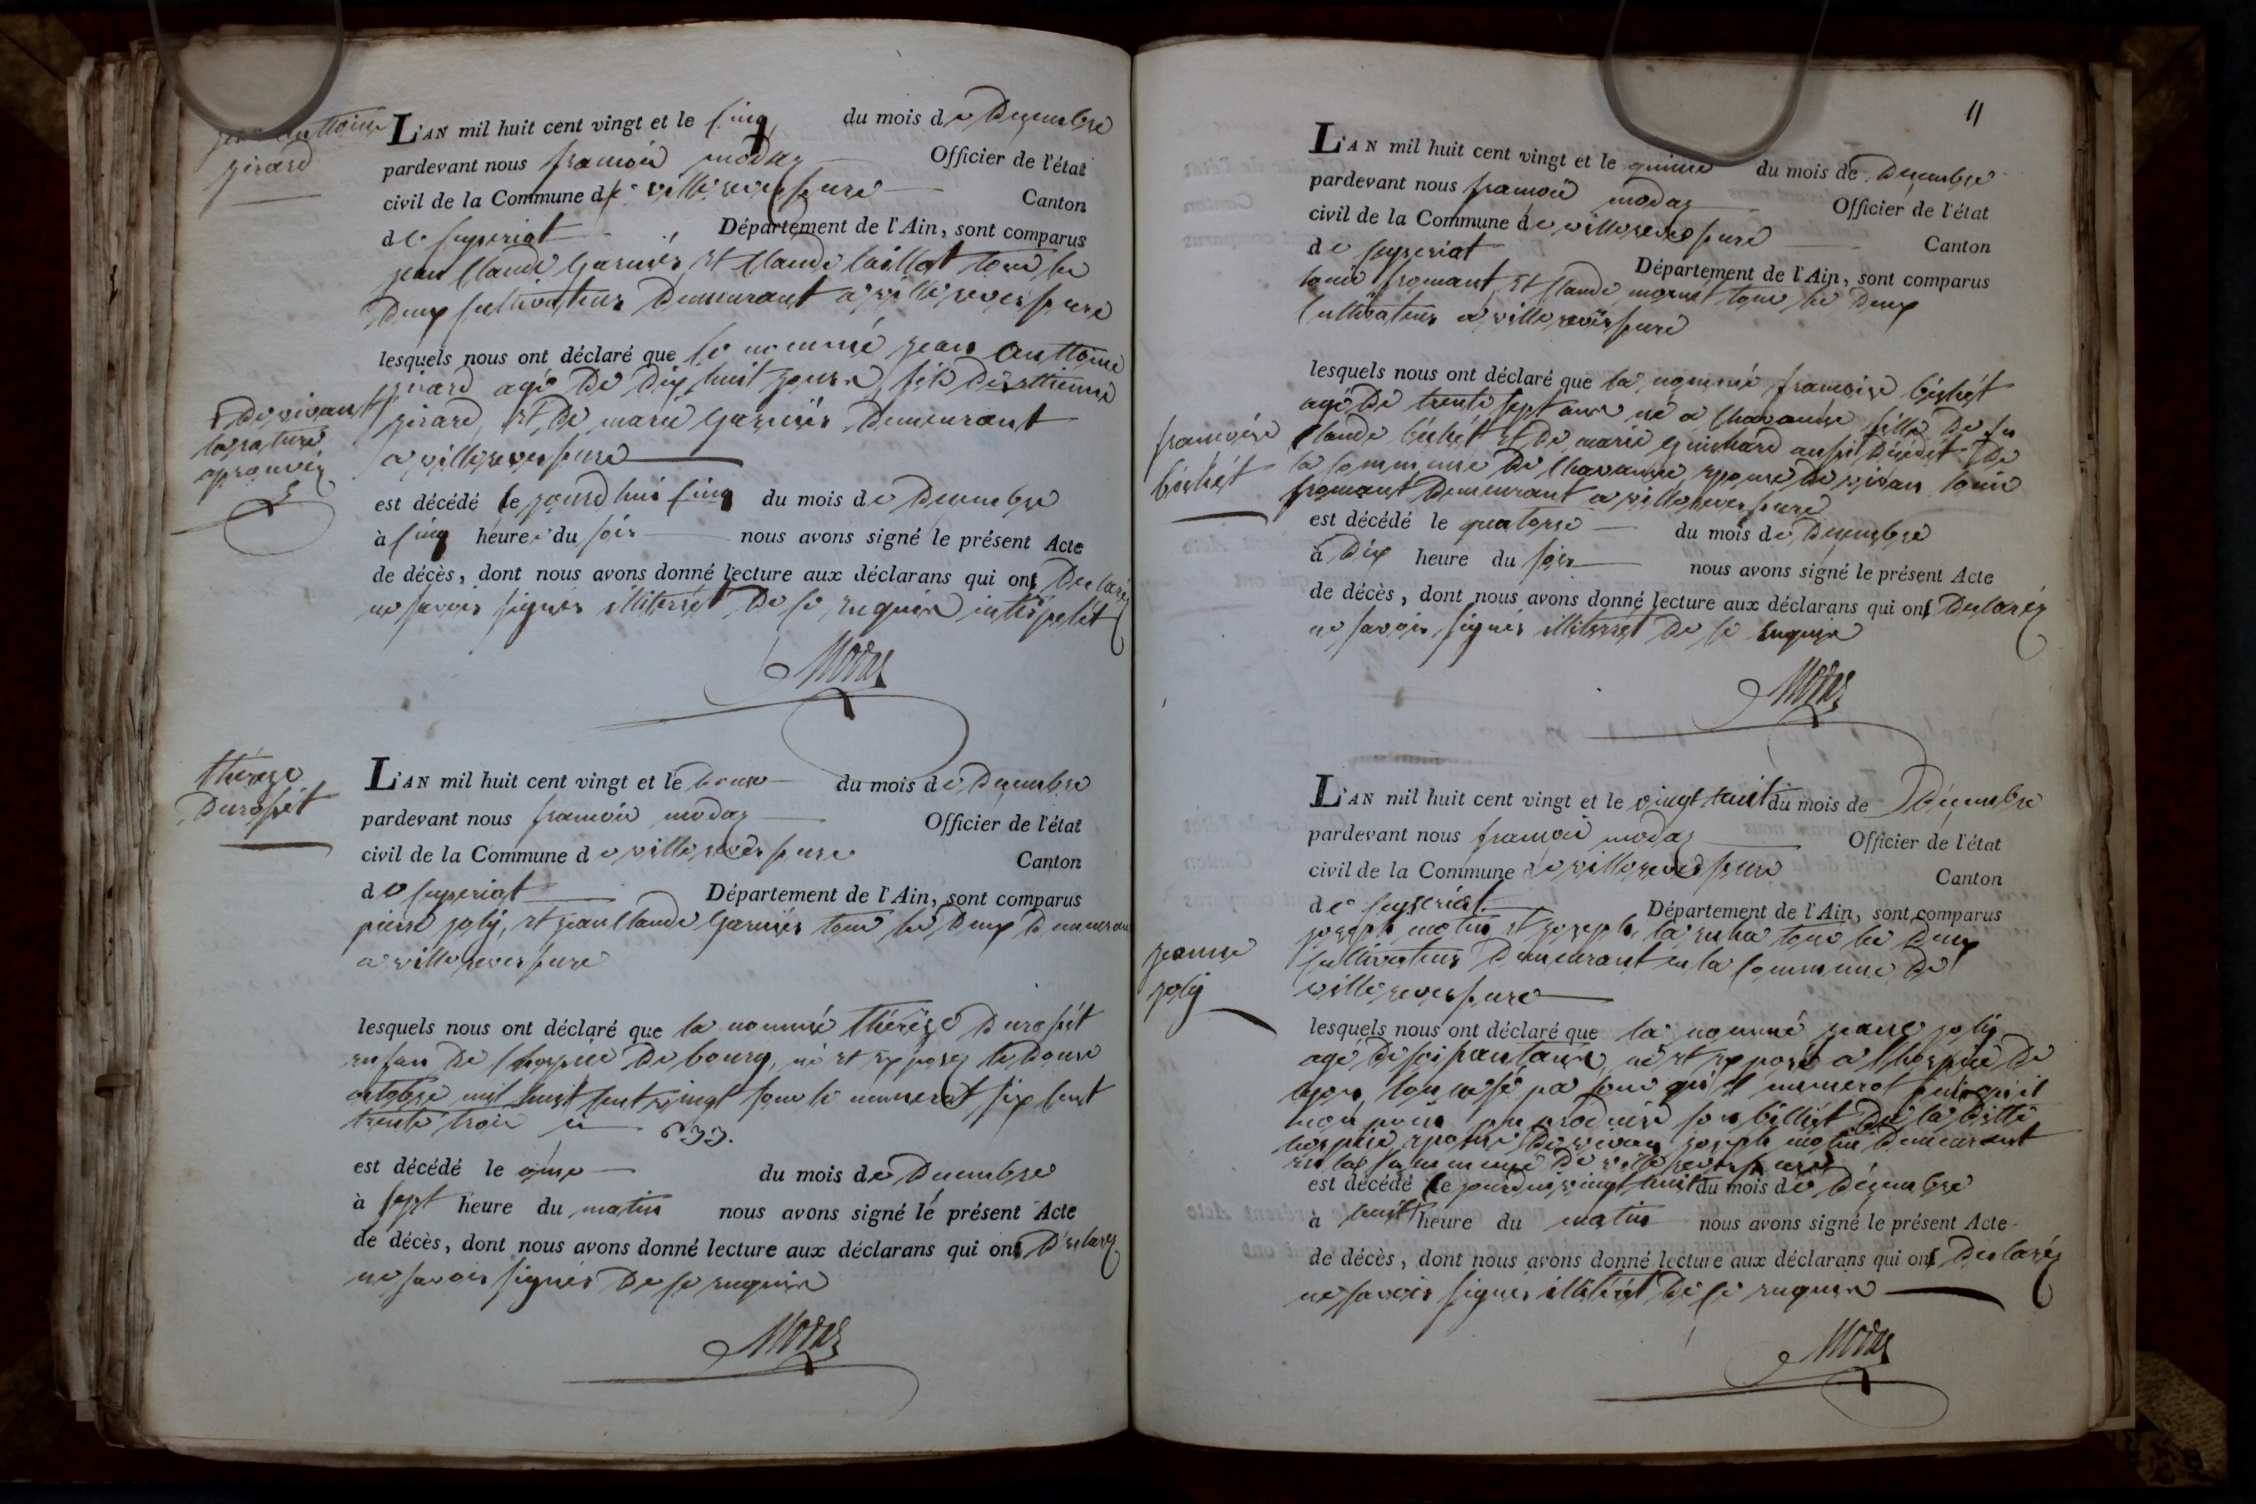 jean anttoine
girard
L'AN mil huit cent vingt et le cinq du mois de Decembre
pardevant nous francois modas Officier de l'état
civil de la Commune de villereverssure Canton
de ceyzeriat Département de l'Ain, sont comparus
jean Claude Garnier et Claude caillat tous les
Deux Cultivateurs Demeurant a villereverssure
lesquels nous ont déclaré que le nommé jean anttoine
girard agé De Dix huit jours, fils D'ettienne
girard, et De marie Garnier Demeurant
a villereverssure
De vivant
la rature
aprouvés
est décédé le jourdhui cinq du mois de Decembre
à cinq heure du soir nous avons signé le présent Acte
de décès, dont nous avons donné lecture aux déclarans qui ont Declarés
ne savoir signer illiterret De ce enquis
Modas
thérèze
Durosset
L'AN mil huit cent vingt et le Douze du mois de Decembre
pardevant nous francois modas Officier de l'état
civil de la Commune de villereverssure Canton
de ceyzeriat Département de l'Ain, sont comparus
pierre joly, et jean Claude Garnier tous les Deux Demeurant
a villereverssure
lesquels nous ont déclaré que la nommé thérèze Durosset
enfan De l'hospice De bourg, né et exposez le Douze
octobre mil huit cent vingt sous le numerot six cent
trente trois 633.
est décédé le onze du mois de Decembre
à sept heure du matin nous avons signé le présent Acte
de décès, dont nous avons donné lecture aux déclarans qui ont Declarez
ne savoir signer De ce enquis
Modas
11
L'AN mil huit cent vingt et le quinze du mois de Decembre
pardevant nous francois modas Officier de l'état
civil de la Commune de villereverssure Canton
de ceyzeriat Département de l'Ain, sont comparus
louis fromant, et Claude mornet tous les Deux
Cultivateurs a villereverssure
lesquels nous ont déclaré que la nommé francoise béchét
agé De trente sept ans né a Chavanne fille De fu
Claude béchét et De marie guichard aussi Décédét De
la Commune De Chavanne, epouse De vivan louis
fromant Demeurant a villereverssure
francoise
béchét
est décédé le quatorze du mois de Decembre
à Dix heure du soir nous avons signé le présent Acte
de décès, dont nous avons donné lecture aux déclarans qui ont Declaréz
ne savoir signer illiterret De ce enquis
Modas
L'AN mil huit cent vingt et le vingt huit du mois de Décembre
pardevant nous francois modas Officier de l'état
civil de la Commune de villereverssure Canton
de ceyzeriat Département de l'Ain, sont comparus
joseph motin et joseph tous les Deux
Cultivateurs Demeurant en la Commune De
villereverssure
jeanne
joly
lesquels nous ont déclaré que la nommé jeane joly
agé De soissantans, né et exposé a l'hospice De
lyon, lon ne sé pa sous qu'el numerot
produire son billiét De la Ditte
hospice, epouse De vivan joseph motin Demeurant
en la Commune De villereverssure
est décédé le jourdui vingt huit du mois de Décembre
à huit heure du matin nous avons signé le présent Acte
de décès, dont nous avons donné lecture aux déclarans qui ont Declaréz
ne savoir signer illiterét De ce enquis
Modas